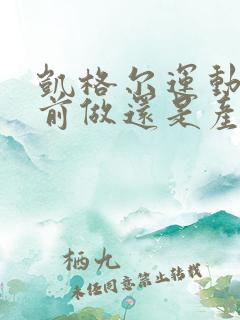 凱格尔運動
前做還是產
栖九
未任同意禁止转载